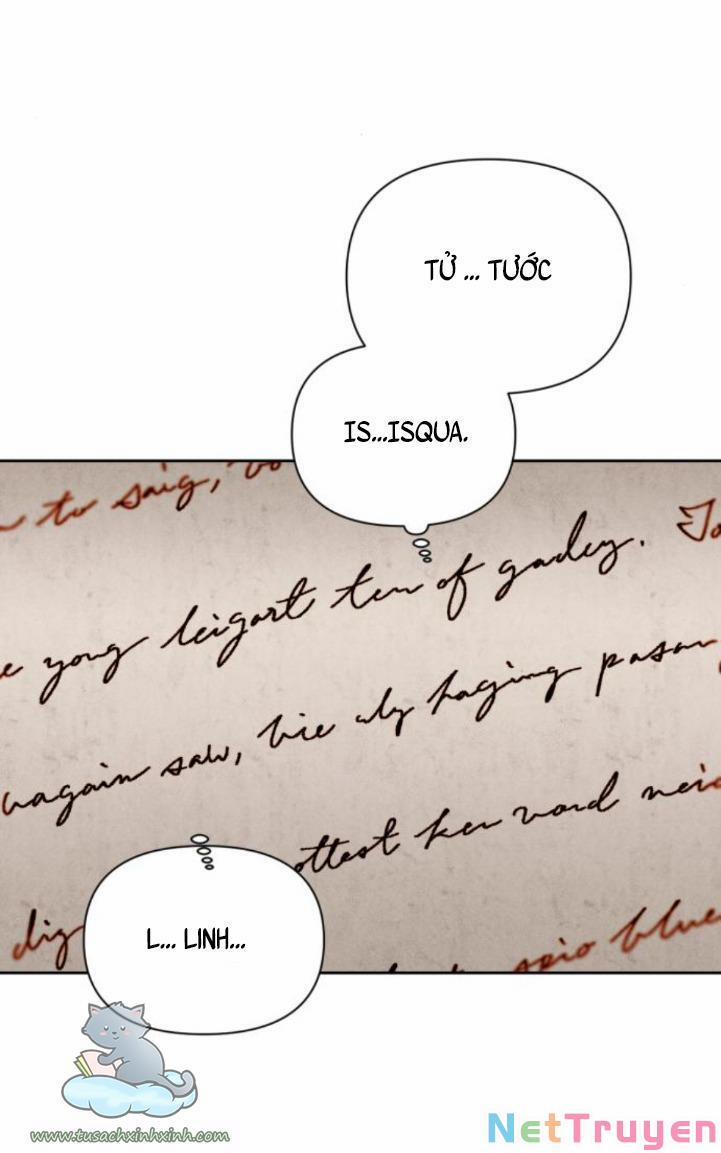 TỬ ... TƯỚC
IS...ISQUA.
to saig,
yong leigart ten of gadey.
again saw, hie aly haging pasar
ottest ken word
dig
blue
L... LINH...
www.tusachxinhxinh.com
NetTruyen